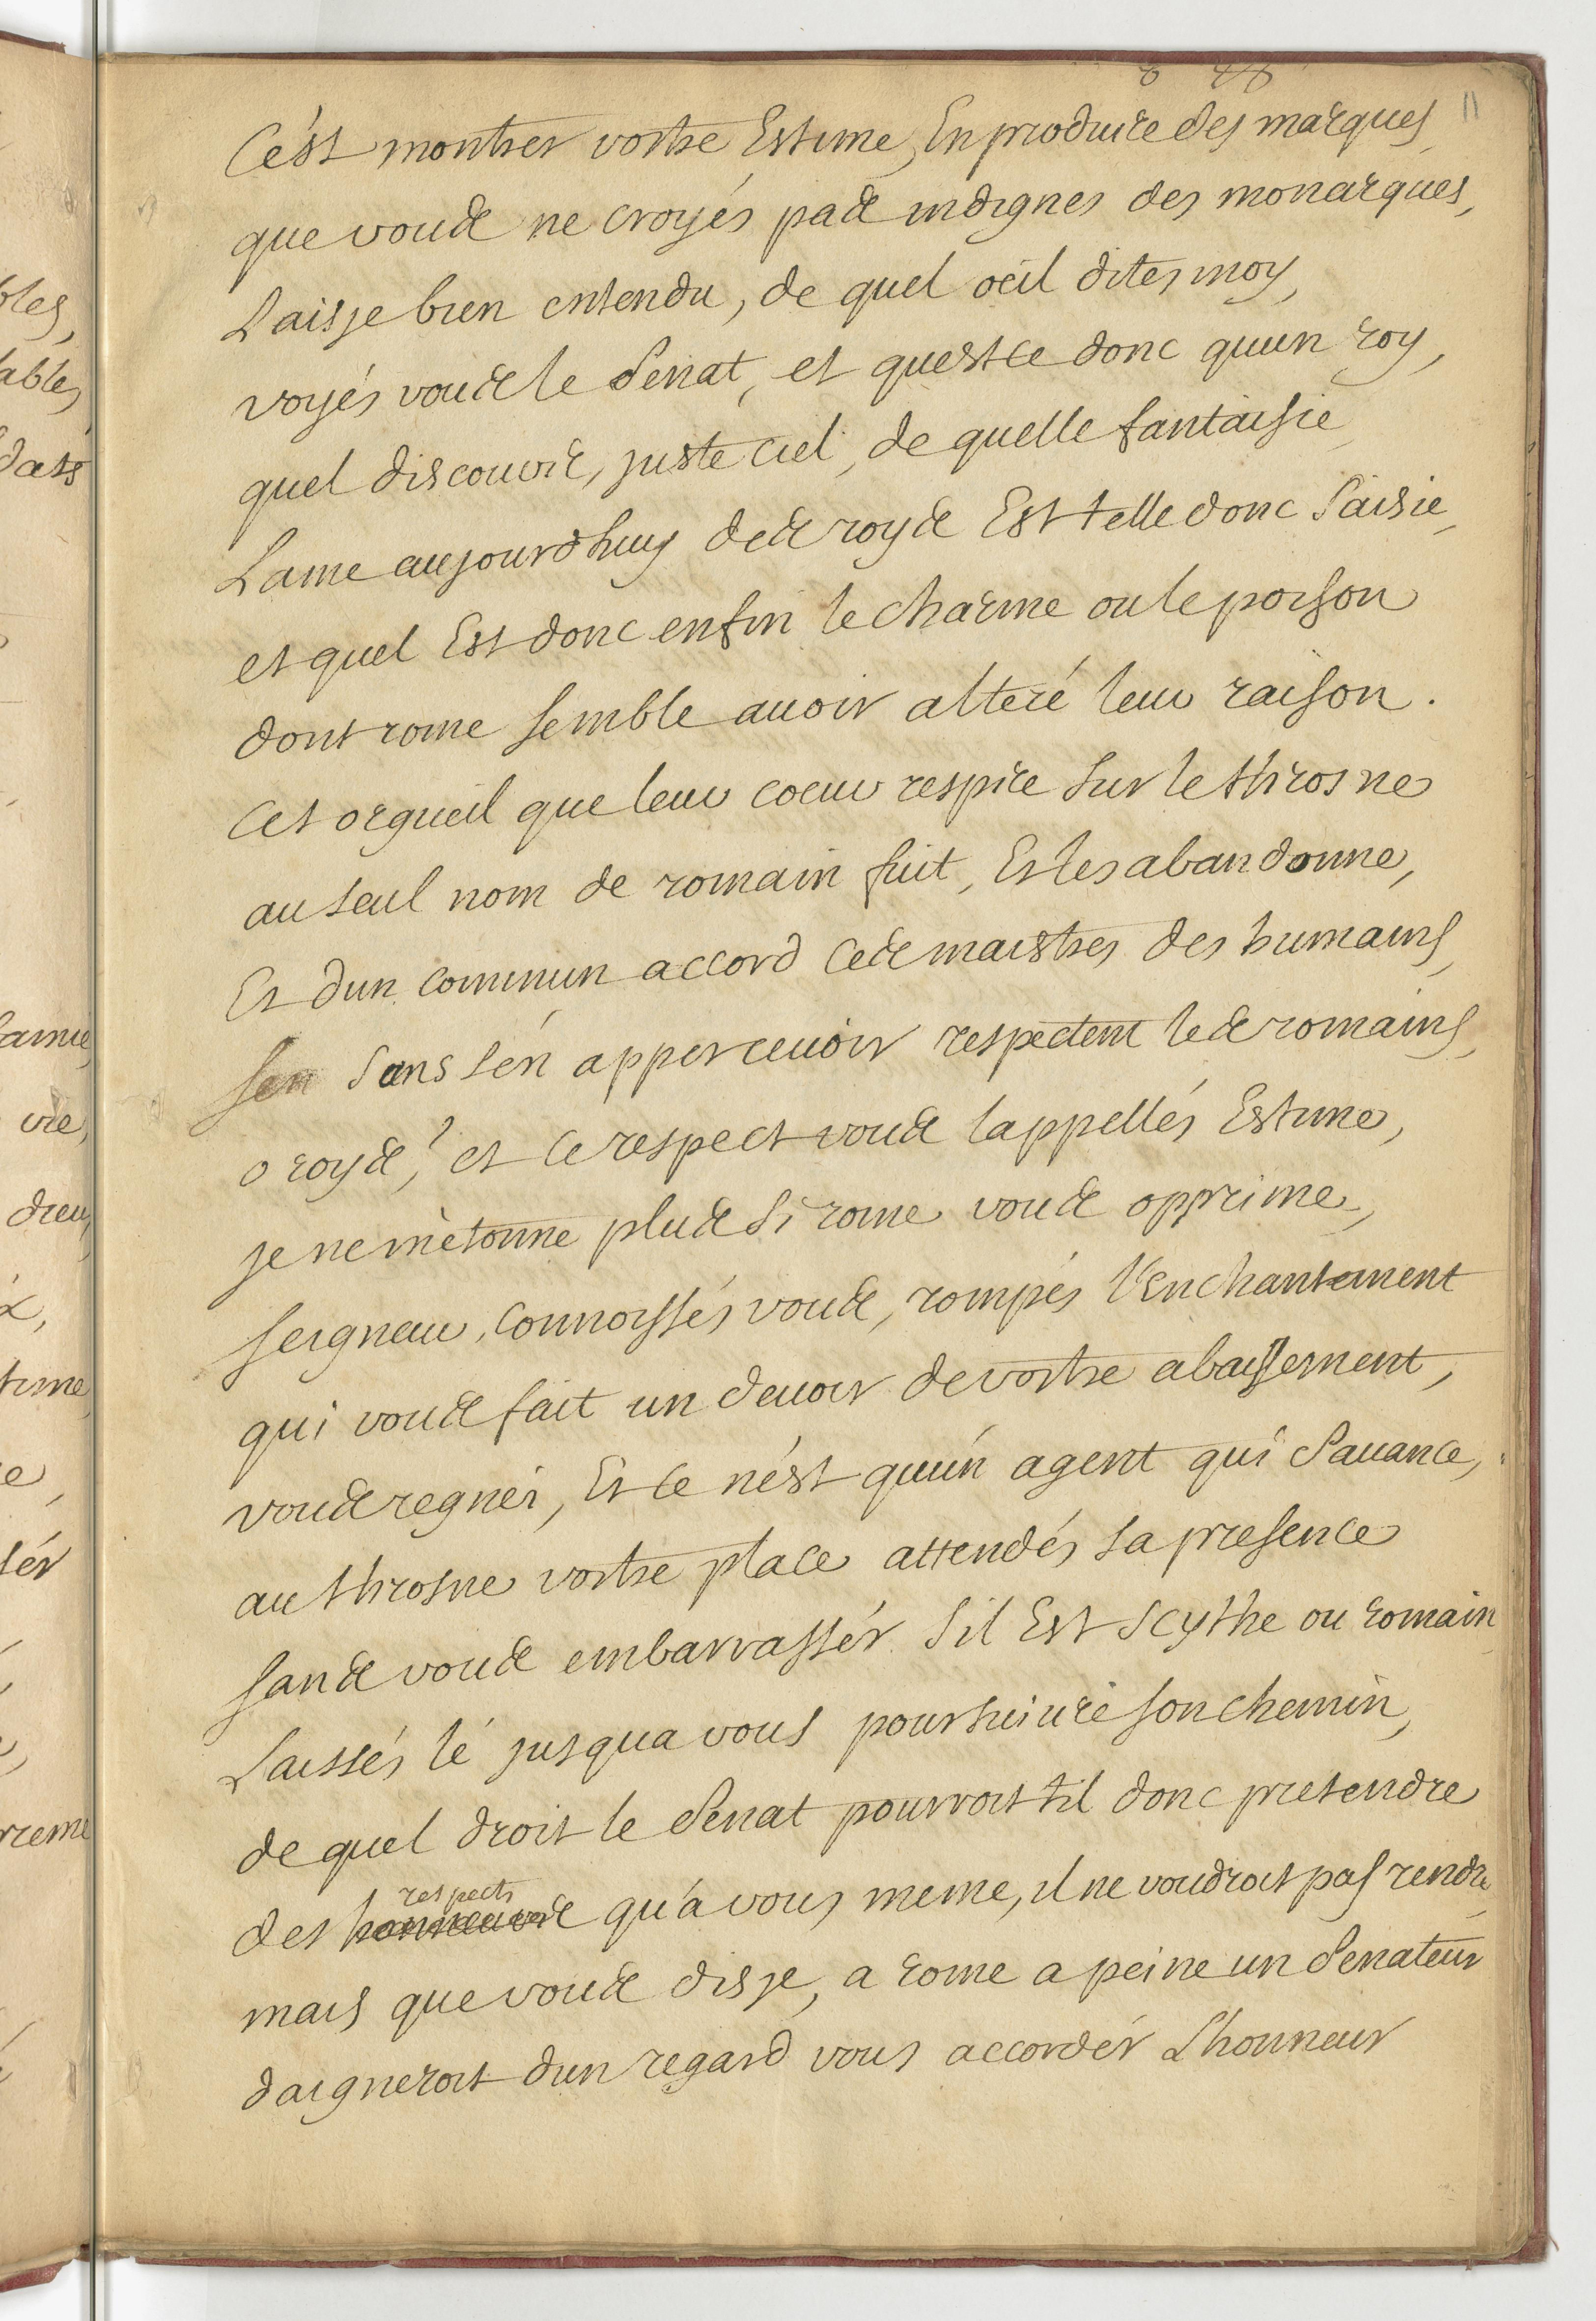 11
C'est montrer vostre Estime, En produire des marques,
que vous ne croyés pas indignes des monarques,
L'aisje bien entendu, de quel oeil dites moy,
voyés vous le Senat, et quest ce donc quun roy,
quel discours, juste ciel, de quelle fantaisie,
Lame aujourdhuy des roys Est telle donc Saisie,
et quel Est donc enfin le charme ou le poison
dont rome semble auoir alteré leur raison.
Cet orgueil que leur coeur respire sur le throsne
au seul nom de romain fuit, Et les abandonne,
Et dun commun accord ces maistres des humains,
Sans s'en apperceuoir respectent les romains,
o roys, et ce respect vous lappellés Estime,
je ne m'etonne plus Si rome vous opprime,
seigneur, connoissés vous, rompés l'Enchantement
qui vous fait un deuoir de vostre abaissement,
vous regnés, Et ce n'est qu'un agent qui S'auance,
au throsne vostre place attendés sa presence
sans vous embarrassér S'il Est Scythe ou romain
Laissés lé jusqua vous poursuiure son chemin,
de quel droit le Senat pourroit til donc pretendre
respects
des honneurs qu'a vous meme, il ne voudroit pas rendre
mais que vous disje, a rome a peine un Senateur
daigneroit dun regard vous accordér L'honneur